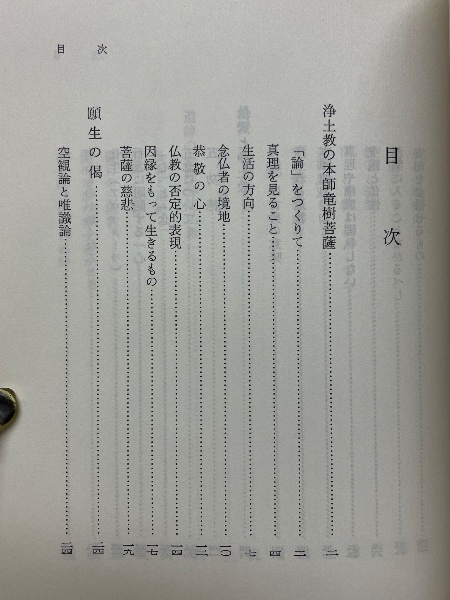 目次
目次
浄土教の本師竜樹菩薩……二
「論」をつくりて……二
真理を見ること……四
生活の方向……七
念仏者の境地……一〇
恭敬の心……一二
仏教の否定的表現……一四
因縁をもって生きるもの……一七
菩薩の慈悲……一九
願生の偈……二四
空観論と唯識論……二四